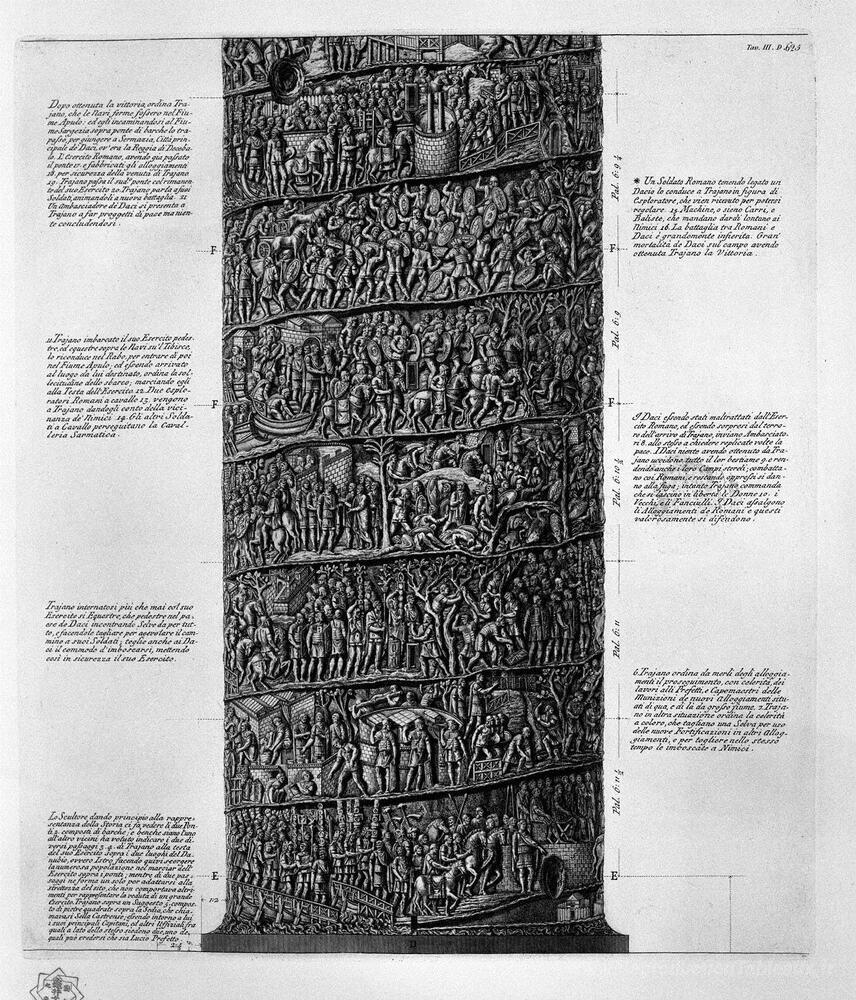 Tav. III. D
Dopo ottenuta la vittoria, ordina Tra-
jano, che le Navi ferme fossero nel Fiu-
me Apulo: ed egli incaminandosi al Fiu-
me Sargezia sopra ponte di barche lo tra-
passò, per giungere a Sermazia, Città prin-
cipale de' Daci, ov'era la Reggia di Deceba-
lo. L'Esercito Romano, avendo già passato
il ponte 17. e fabbricati gli alloggiamenti
18. per sicurezza della venuta di Trajano
19. Trajano passa il sud.º ponte col rimanen-
te del suo Esercito 20. Trajano parla a suoi
Soldati, animandoli a nuova battaglia. 21
Un Ambasciadore de' Daci si presenta a
Trajano a far proggetti di pace ma nien-
te concludendosi.
Pal. 6:9 4
* Un Soldato Romano tenendo legato un
Dacio lo conduce a Trajano in figura di
Esploratore, che vien ricevuto per potersi
regolare. 15. Machine, o sieno Carri, e
Baliste, che mandano dardi lontano ai
Nimici 16. La battaglia tra Romani e
Daci è grandemente infierita. Gran'
mortalità de Daci sul campo avendo
ottenuta Trajano la Vittoria.
F
F
11. Trajano imbarcato il suo Esercito pedes-
tre, ed equestre sopra le Navi su'l Tibisco,
lo riconduce nel Rabo, per entrare di poi
nel Fiume Apulo; ed essendo arrivato
al luogo da lui destinato, ordina la sol-
lecitudine dello sbarco; marciando egli
alla Testa dell'Esercito 12. Due Esplo-
ratori Romani a cavallo 13. vengono
a Trajano dandogli conto della vici-
nanza de' Nimici 14. Gli altri Solda-
ti a Cavallo perseguitano la Caval-
leria Sarmatica.
Pal. 6:9
F
F
I Daci essendo stati maltrattati dall'Eser-
cito Romano, ed essendo sorpresi dal terro-
re dell'arrivo di Trajano, inviano Ambasciato-
ri 8. allo stesso a chiedere replicate volte la
pace. I Daci niente avendo ottenuto da Tra-
jano uccidono tutto il lor bestiame 9. e ren-
dendo anche i loro Campi sterili; combatta-
no coi Romani, e restando oppressi si dan-
no alla fuga; intanto Trajano commanda
che si lascino in libertà le Donne 10. i
Vecchi, e li Fanciulli. I Daci assalgono
li Alloggiamenti de Romani e questi
valorosamente si difendono.
Pal. 6:10 ½
Trajano internatosi più che mai col suo
Esercito sì Equestre, che pedestre nel pa-
ese de Daci incontrando Selve da per tut-
to, e facendole tagliare per agevolare il cam-
mino a suoi Soldati; toglie anche ai Da-
ci il commodo d'imboscarsi, mettendo
così in sicurezza il suo Esercito.
Pal. 6:11
6. Trajano ordina da merli degli alloggia-
menti il proseguimento, con celerità, dei
lavori alli Prefetti, e Capomastri delle
Munizioni de nuovi Alloggiamenti situ-
ati di qua, e di la da grosso fiume. 7. Traja-
no in altra situazione ordina la celerità
a coloro, che tagliano una Selva per uso
delle nuove Fortificazioni in altri Allog-
giamenti, e per togliere nello stesso
tempo le imboscate a Nimici.
Pal. 6:11 ½
Lo Scultore dando principio alla rappre-
sentanza della Storia ci fa vedere li due Pon-
ti 2. composti di barche; e benche siano l'uno
all'altro vicini ha voluto indicare i due di-
versi passaggi 3. 4. di Trajano alla testa
del suo Esercito sopra i due luoghi del Da-
nubio, ovvero Istro, facendo quivi scorgere
la numerosa popolazione nel marciar dell'
Esercito sopra i ponti; mentre di due pas-
saggi ne forma un solo per adattarsi alla
strettezza del sito, che non comportava altri-
menti per rappresentare la veduta di un grande
Esercito. Trajano sopra un Suggesto 5. compos-
to di pietre quadrate sopra la Sedia, che chia-
mavasi Sella Castrense, essendo intorno a lui
i suoi principali Capitani, ed altri Uffiziali fra
quali a lato dello stesso siedono due, uno de,
quali può credersi che sia Lucio Prefetto.
E
E
D